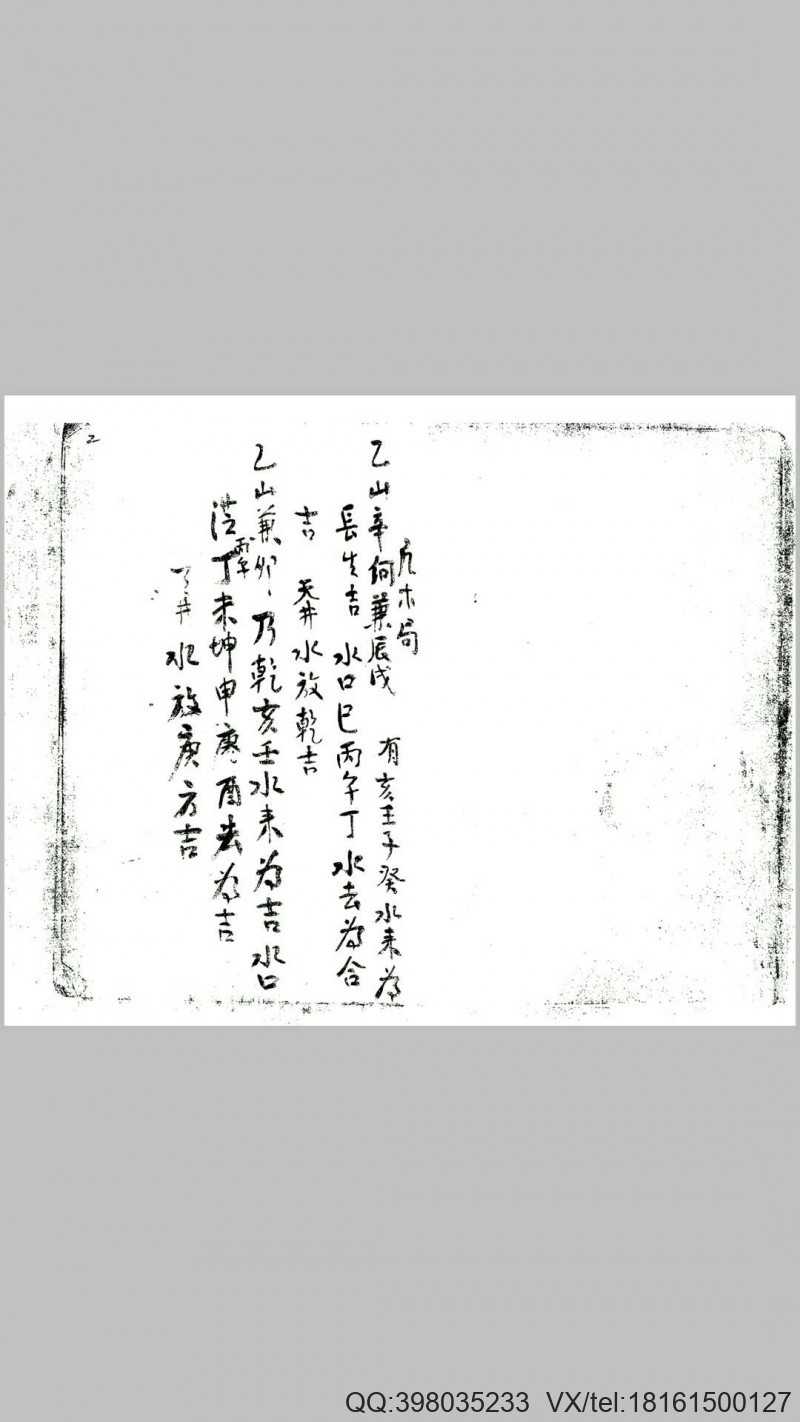 乙山辛向兼辰戌 有亥壬子癸水来为
木局
長生吉 水口巳丙午丁水去为合
吉 天井水放乾吉
乙山兼卯 乃乾亥壬水来为吉水口
丁未坤申庚酉去为吉
井水放庚方吉
2
QQ:398035233 VX/tel:18161500127